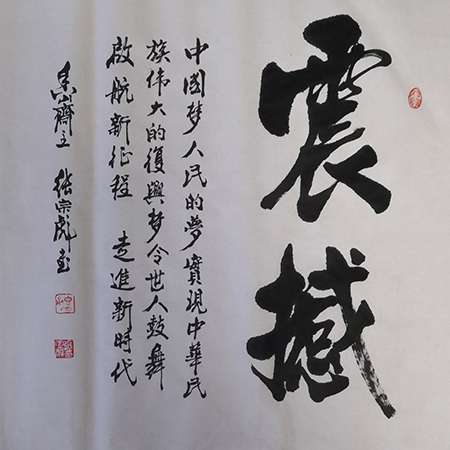 震撼
中国梦人民的夢實現中華民
族伟大的復興梦令世人鼓舞
啟航新征程 走進新時代
齋主 张宗彪